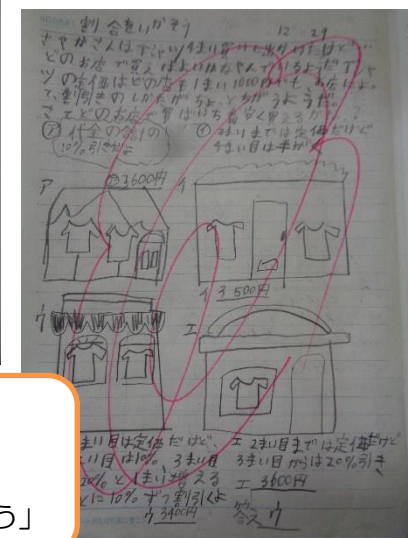 割合をいかそう 12 29
さやかさんはTシャツ4まい買いに出かけたけど
どのお店で買えばよいかなやんでいるようだ Tシャ
ツの定価はどの店も1まい1000円でも、お店によっ
て、割引きのしかたがちょっとちがうようだ。
さてどのお店で買えばいちばん安く買えるか?
㋐ 代金の合計の
10%引きだよ
㋑ 3まいまでは定価だけど
4まい目は半がく
ア ㋐3600円 イ
イ 3500円
ウ エ
まい目は定価だけど、
まい目は10% 3まい目
20%と1まい増える
とに10%ずつ割引くよ
ウ 3400円
エ 2まい目までは定価だけど
3まい目からは20%引き
エ 3600円
答え ウ
う」